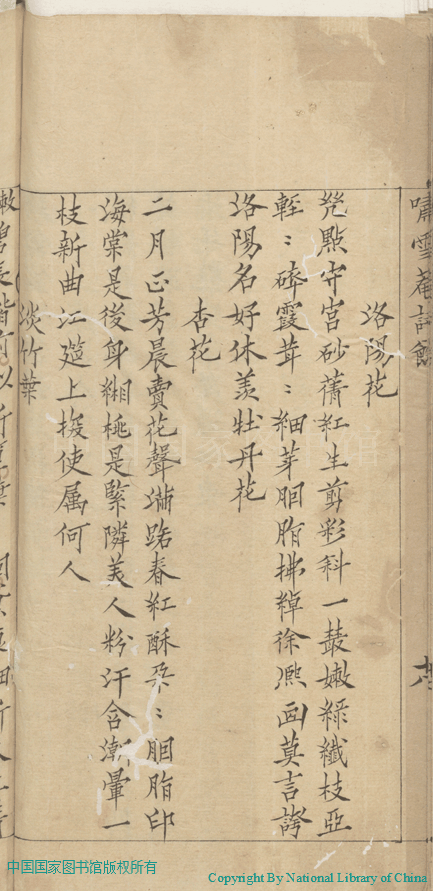 嘯雪菴詩餘
洛陽花
點守宮砂蒨紅生剪彩科一鼓嫩綠纖枝亞
輕〻磔霞茸〻細芽胭脂拂綽徐熈画莫言誇
洛陽名好休羡牡丹花
杏花
二月正芳晨賣花聲滿路春紅酥朶〻胭脂印
海棠是後身緗桃是緊隣美人粉汗含漸暈一
枝新曲江筵上掇使属何人
淡竹葉
中国国家图书馆
中国国家图书馆版权所有
Copyright By National Library of China